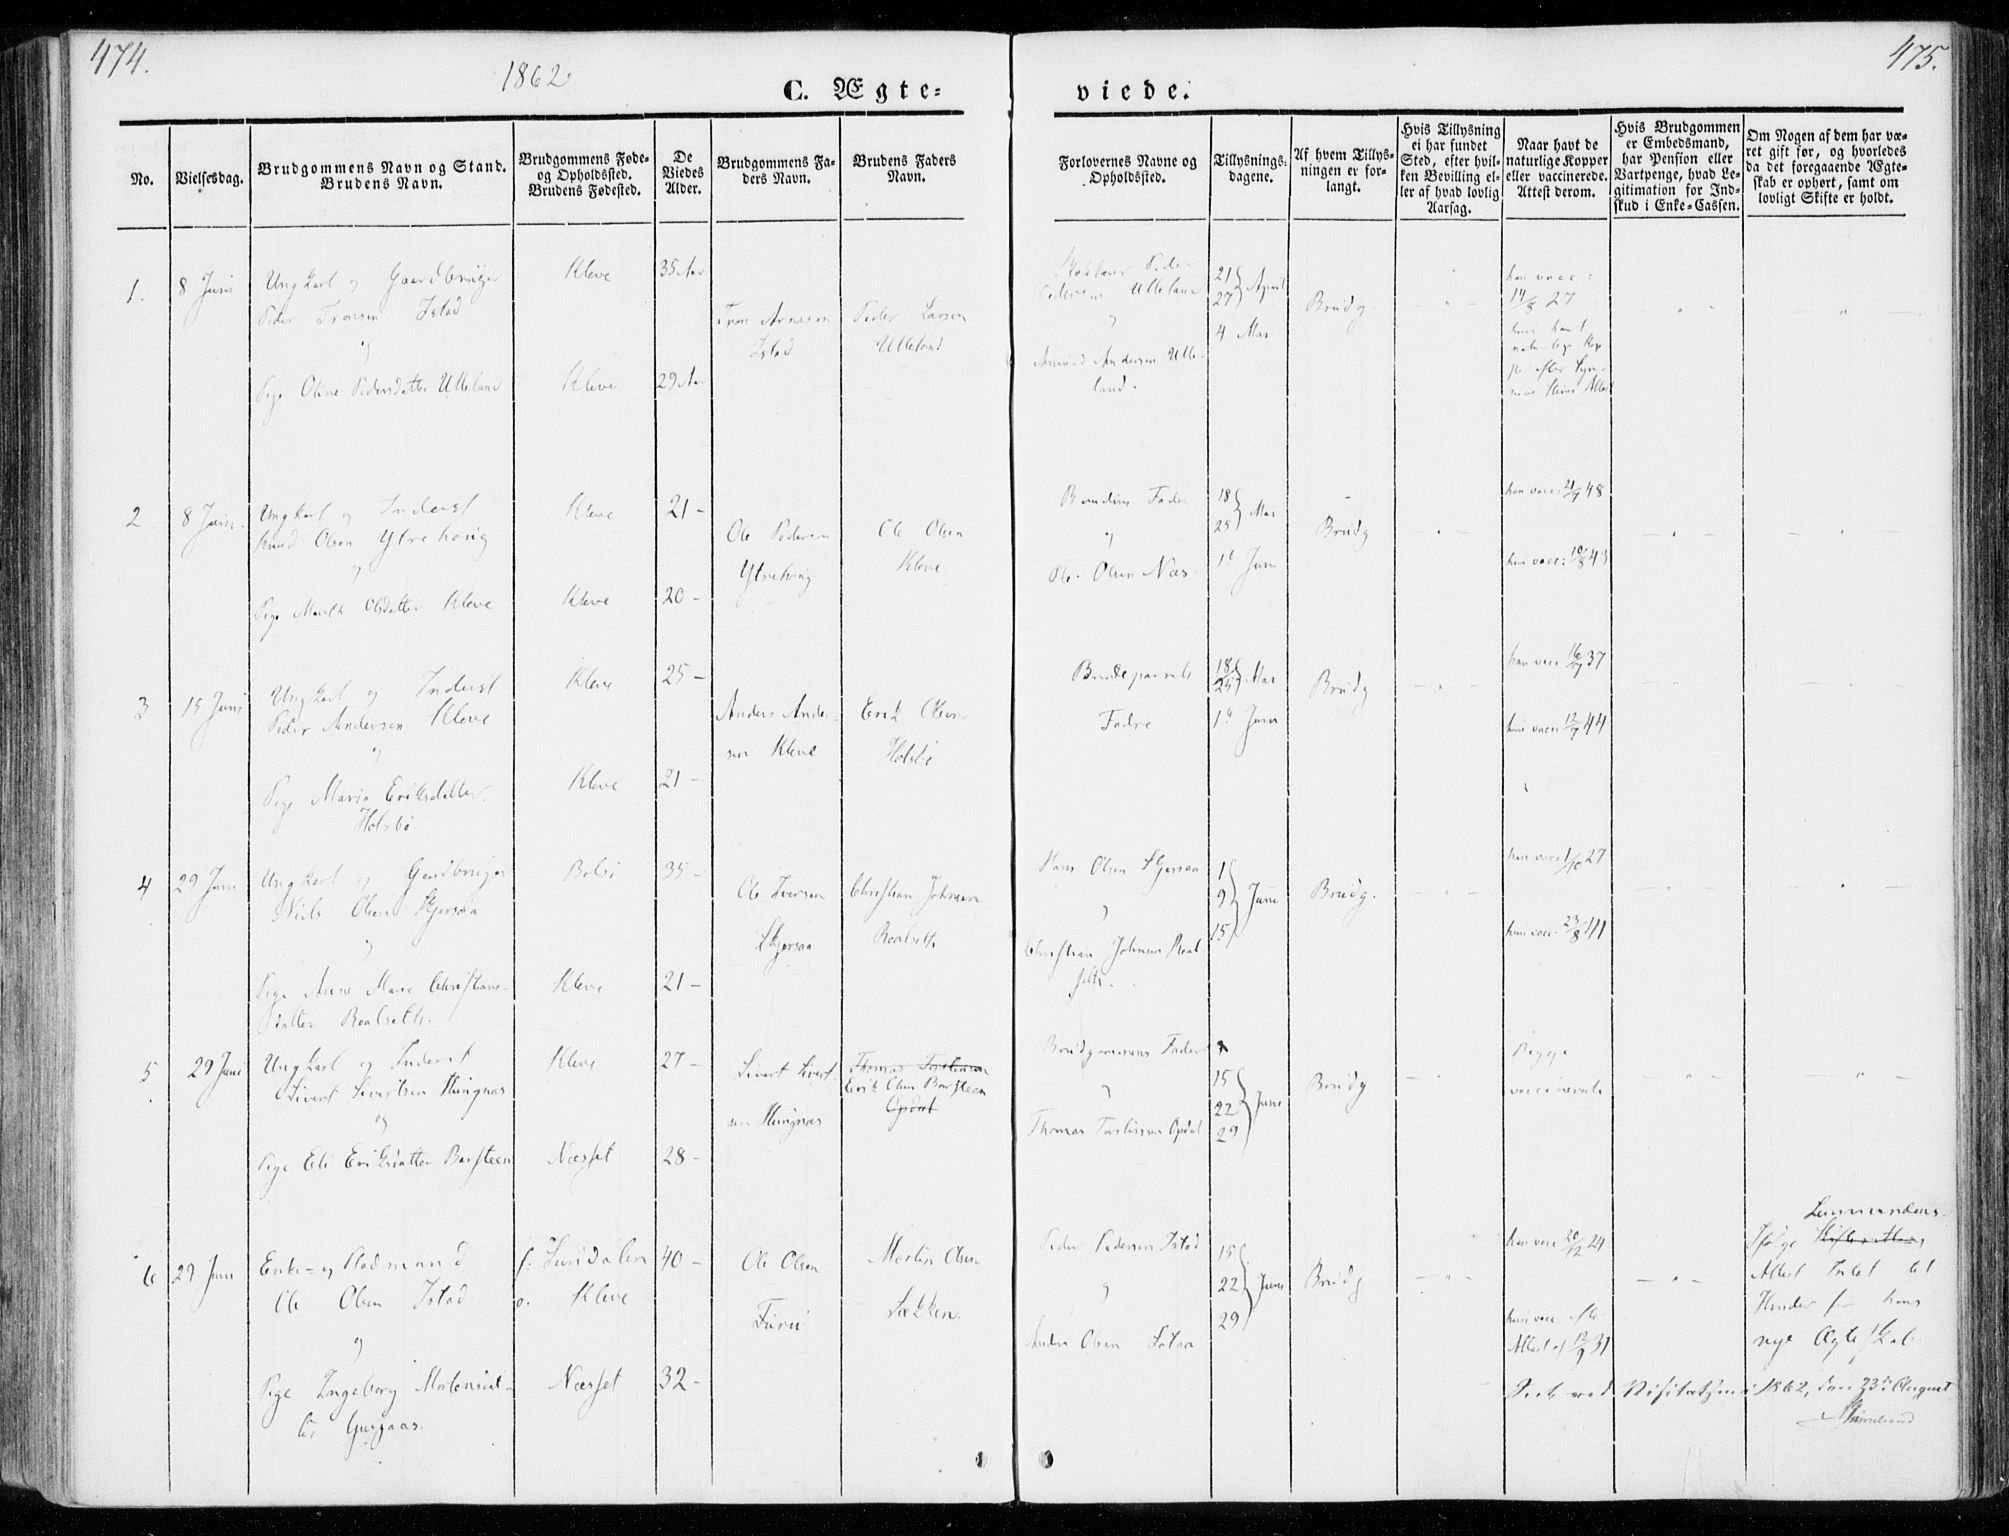 474.
1862
C. Ægte=
viede.
475.
No.
Vielsesdag.
Brudgommens Navn og Stand.
Brudens Navn.
Brudgommens Føde-
og Opholdssted.
Brudens Fødested.
De
Viedes
Alder.
Brudgommens Fa-
ders Navn.
Brudens Faders
Navn.
Forlovernes Navne og
Opholdssted.
Tillysnings-
dagene.
Af hvem Tillys-
ningen er for-
langt.
Hvis Tillysning
ei har fundet
Sted, efter hvil-
ken Bevilling el-
ler af hvad lovlig
Aarsag.
Naar havt de
naturlige Kopper
eller vaccinerede.
Attest derom.
Hvis Brudgommen
er Embedsmand,
har Pension eller
Vartpenge, hvad Le-
gitimation for Ind-
skud i Enke=Cassen.
Om Nogen af dem har væ-
ret gift før, og hvorledes
da det foregaaende Ægte-
skab er ophørt, samt om
lovligt Skifte er holdt.
1.
8 Juni
Ungkarl og Gaardbruger
Peder Tronsen Istad
og
Pige Oline Pedersdatter Ulleland
Kleve
Kleve
35 Aar
29 Aar
Tron Arnesen
Istad
Peder Larsen
Ulleland
Peder
Pedersen Ulleland
og
Amund Andersen Ulle-
land.
21
27 April
4 Mai
Brudg.
han vacc:
14/8 27
hun havt
naturlige Kop
per efter
Attest
2
8 Juni
Ungkarl og Inderst
Knud Olsen Ytrehoug
og
Pige Marit Olsdatter Kleve
Kleve
Kleve
21 -
20 -
Ole Pedersen
Ytrehoug
Ole Olsen
Kleve
Brudens Fader
og
Ole Olsen Næs
18
25 Mai
1t Juni
Brudg
han vacc: 21/7 48
hun vacc: 10/8 43
3
15 Juni
Ungkarl og Inderst
Peder Andersen Kleve
og
Pige Maria Eriksdatter
Holsbø
Kleve
Kleve
25 -
21 -
Anders Ander-
sen Kleve
Erik Olsen
Holsbø
Brudeparrets
Fædre
18
25 Mai
1t Juni
Brudg
han vacc 16/7 37
hun vacc 12/7 44
4
29 Juni
Ungkarl og Gaardbruger
Niels Olsen Skjorsaa
og
Pige Anne Marie Christians-
datter Roalseth.
Bolsø
Kleve
35 -
21 -
Ole Iversen
Skjorsaa
Christian Johnsen
Roalseth.
Hans Olsen Skjorsaa
og
Christian Johnsen Roal
seth.
1
9 Juni
15
Brudg.
han vacc 1/10 27
hun vacc 23/8 41
5
29 Juni
Ungkarl og Inderst
Sivert Sivertsen Hungnæs
og
Pige Eli Eriksdatter Barsteen
Kleve
Næsset
27 -
28 -
Sivert Sivert-
sen Hungnæs
Thomas Torstensen
Erik Olsen Barsteen
Opdøl
Brudgommens Fader
og
Thomas Torstensen Opdøl
15
22 Juni
29
Brudg
Begge
vaccinerede
6
29 Juni
Enke- og Pladsmand
Ole Olsen Istad
og
Pige Ingeborg Mortensdat-
ter Gusjaas.
f: Sundalen
o. Kleve
Næsset
40 -
32 -
Ole Olsen
Furu
Morten Olsen
Sækken.
Peder Pedersen Istad
og
Anders Olsen
15
22 Juni
29
Brudg
han vacc 20/12 24
hun vacc efter
Attest af 12/9 31
Lensmandens
Ifølge
Attest Intet til
Hinder for hans
nye Ægteskab
Seet ved Visitatsen i 1862, den 23de August